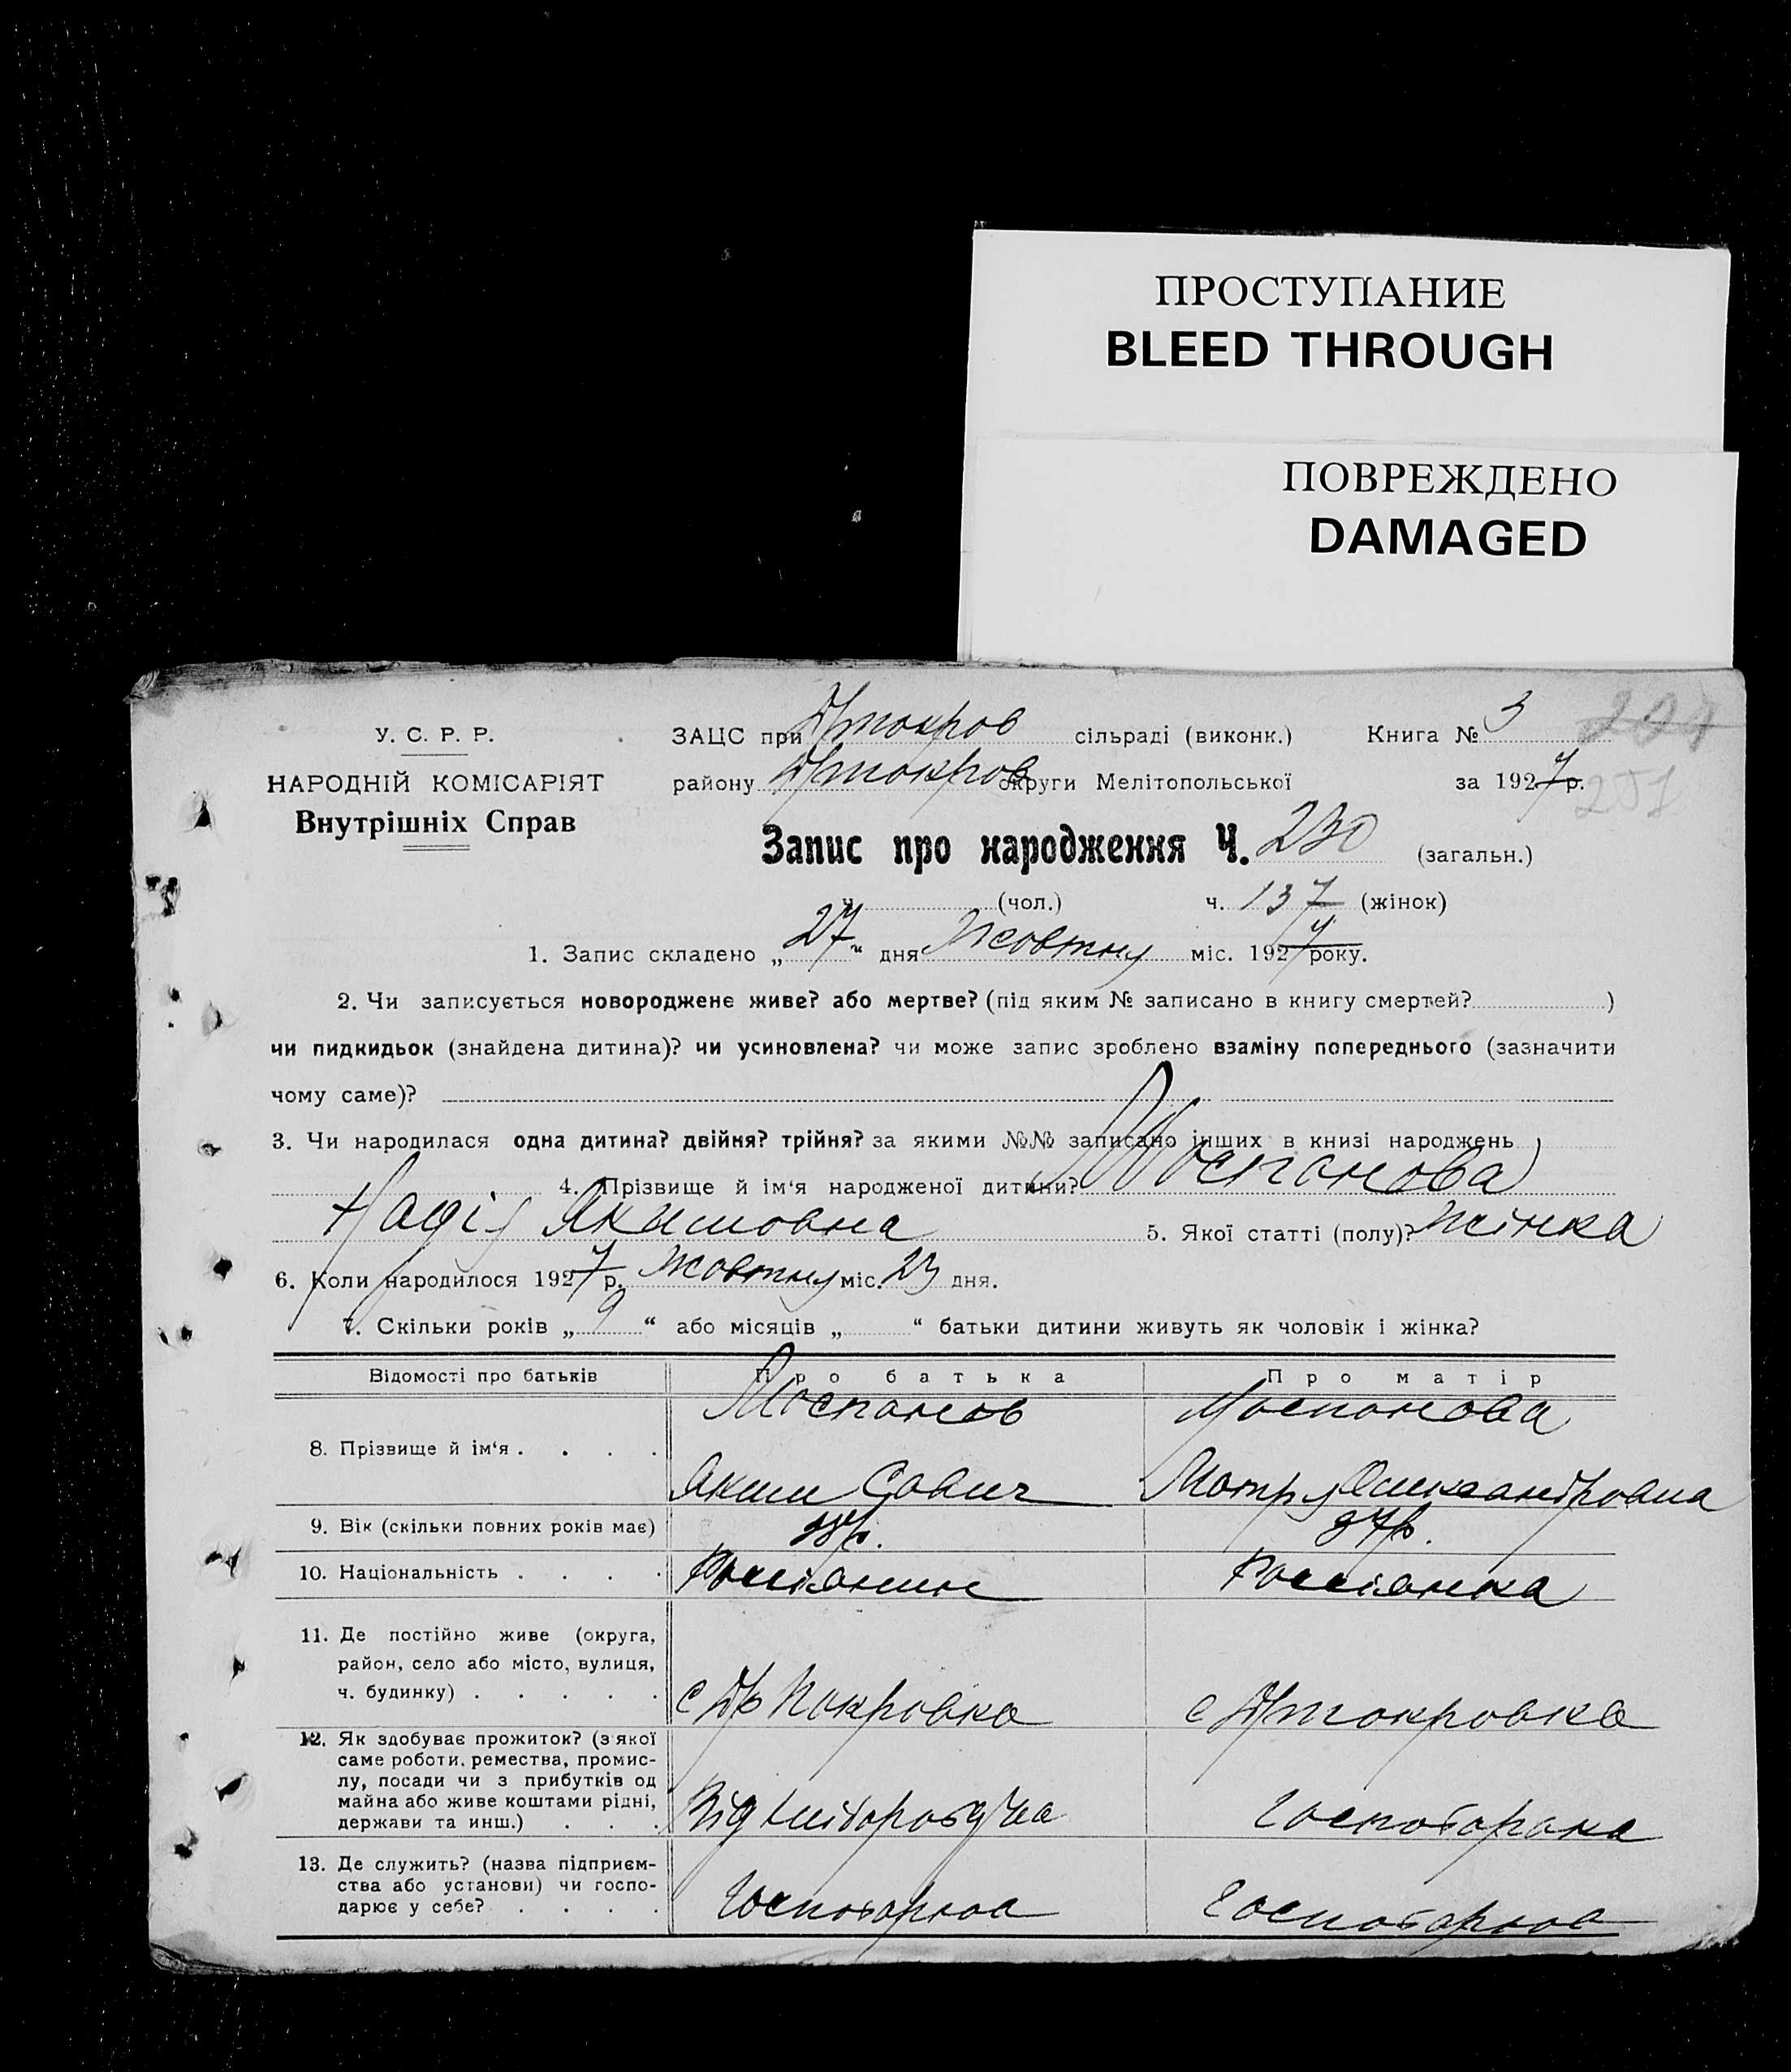 ПРОСТУПАНИЕ
BLEED THROUGH
ПОВРЕЖДЕНО
DAMAGED
У. С. Р. Р.
НАРОДНІЙ КОМІСАРІЯТ
Внутрішніх Справ
ЗАЦС при сільраді (виконк.) Книга № 3
району округи Мелітопольської за 1927 р.
201
Запис про народження Ч. 230 (загальн.)
ч. (чол.) ч. 137 (жінок)
1. Запис складено „27“ дня Жовтня міс. 1927 року.
2. Чи записується новороджене живе? або мертве? (під яким № записано в книгу смертей? )
чи пидкидьок (знайдена дитина)? чи усиновлена? чи може запис зроблено взаміну попереднього (зазначити
чому саме)?
3. Чи народилася одна дитина? двійня? трійня? за якими №№ записано інших в книзі народжень
4. Прізвище й ім‘я народженої дитини? Моспанова
Надія Якимовна 5. Якої статті (полу)? Жінка
6. Коли народилося 1927 р. Жовтня міс. 23 дня.
7. Скільки років „9“ або місяців „ “ батьки дитини живуть як чоловік і жінка?
Відомості про батьків Про батька Про матір
8. Прізвище й ім‘я . . . . Моспанов Моспанова
Яким Савич Мотря Олександровна
9. Вік (скільки повних років має) 28 р. 27 р.
10. Національність . . . . Россіянин Россіянка
11. Де постійно живе (округа,
район, село або місто, вулиця,
ч. будинку) . . . . . с Др Покровка с Др Покровка
12. Як здобуває прожиток? (з якої
саме роботи, ремества, промис-
лу, посади чи з прибутків од
майна або живе коштами рідні,
держави та инш.) . . . Від
13. Де служить? (назва підприєм-
ства або установи) чи госпо-
дарює у себе? . . . .